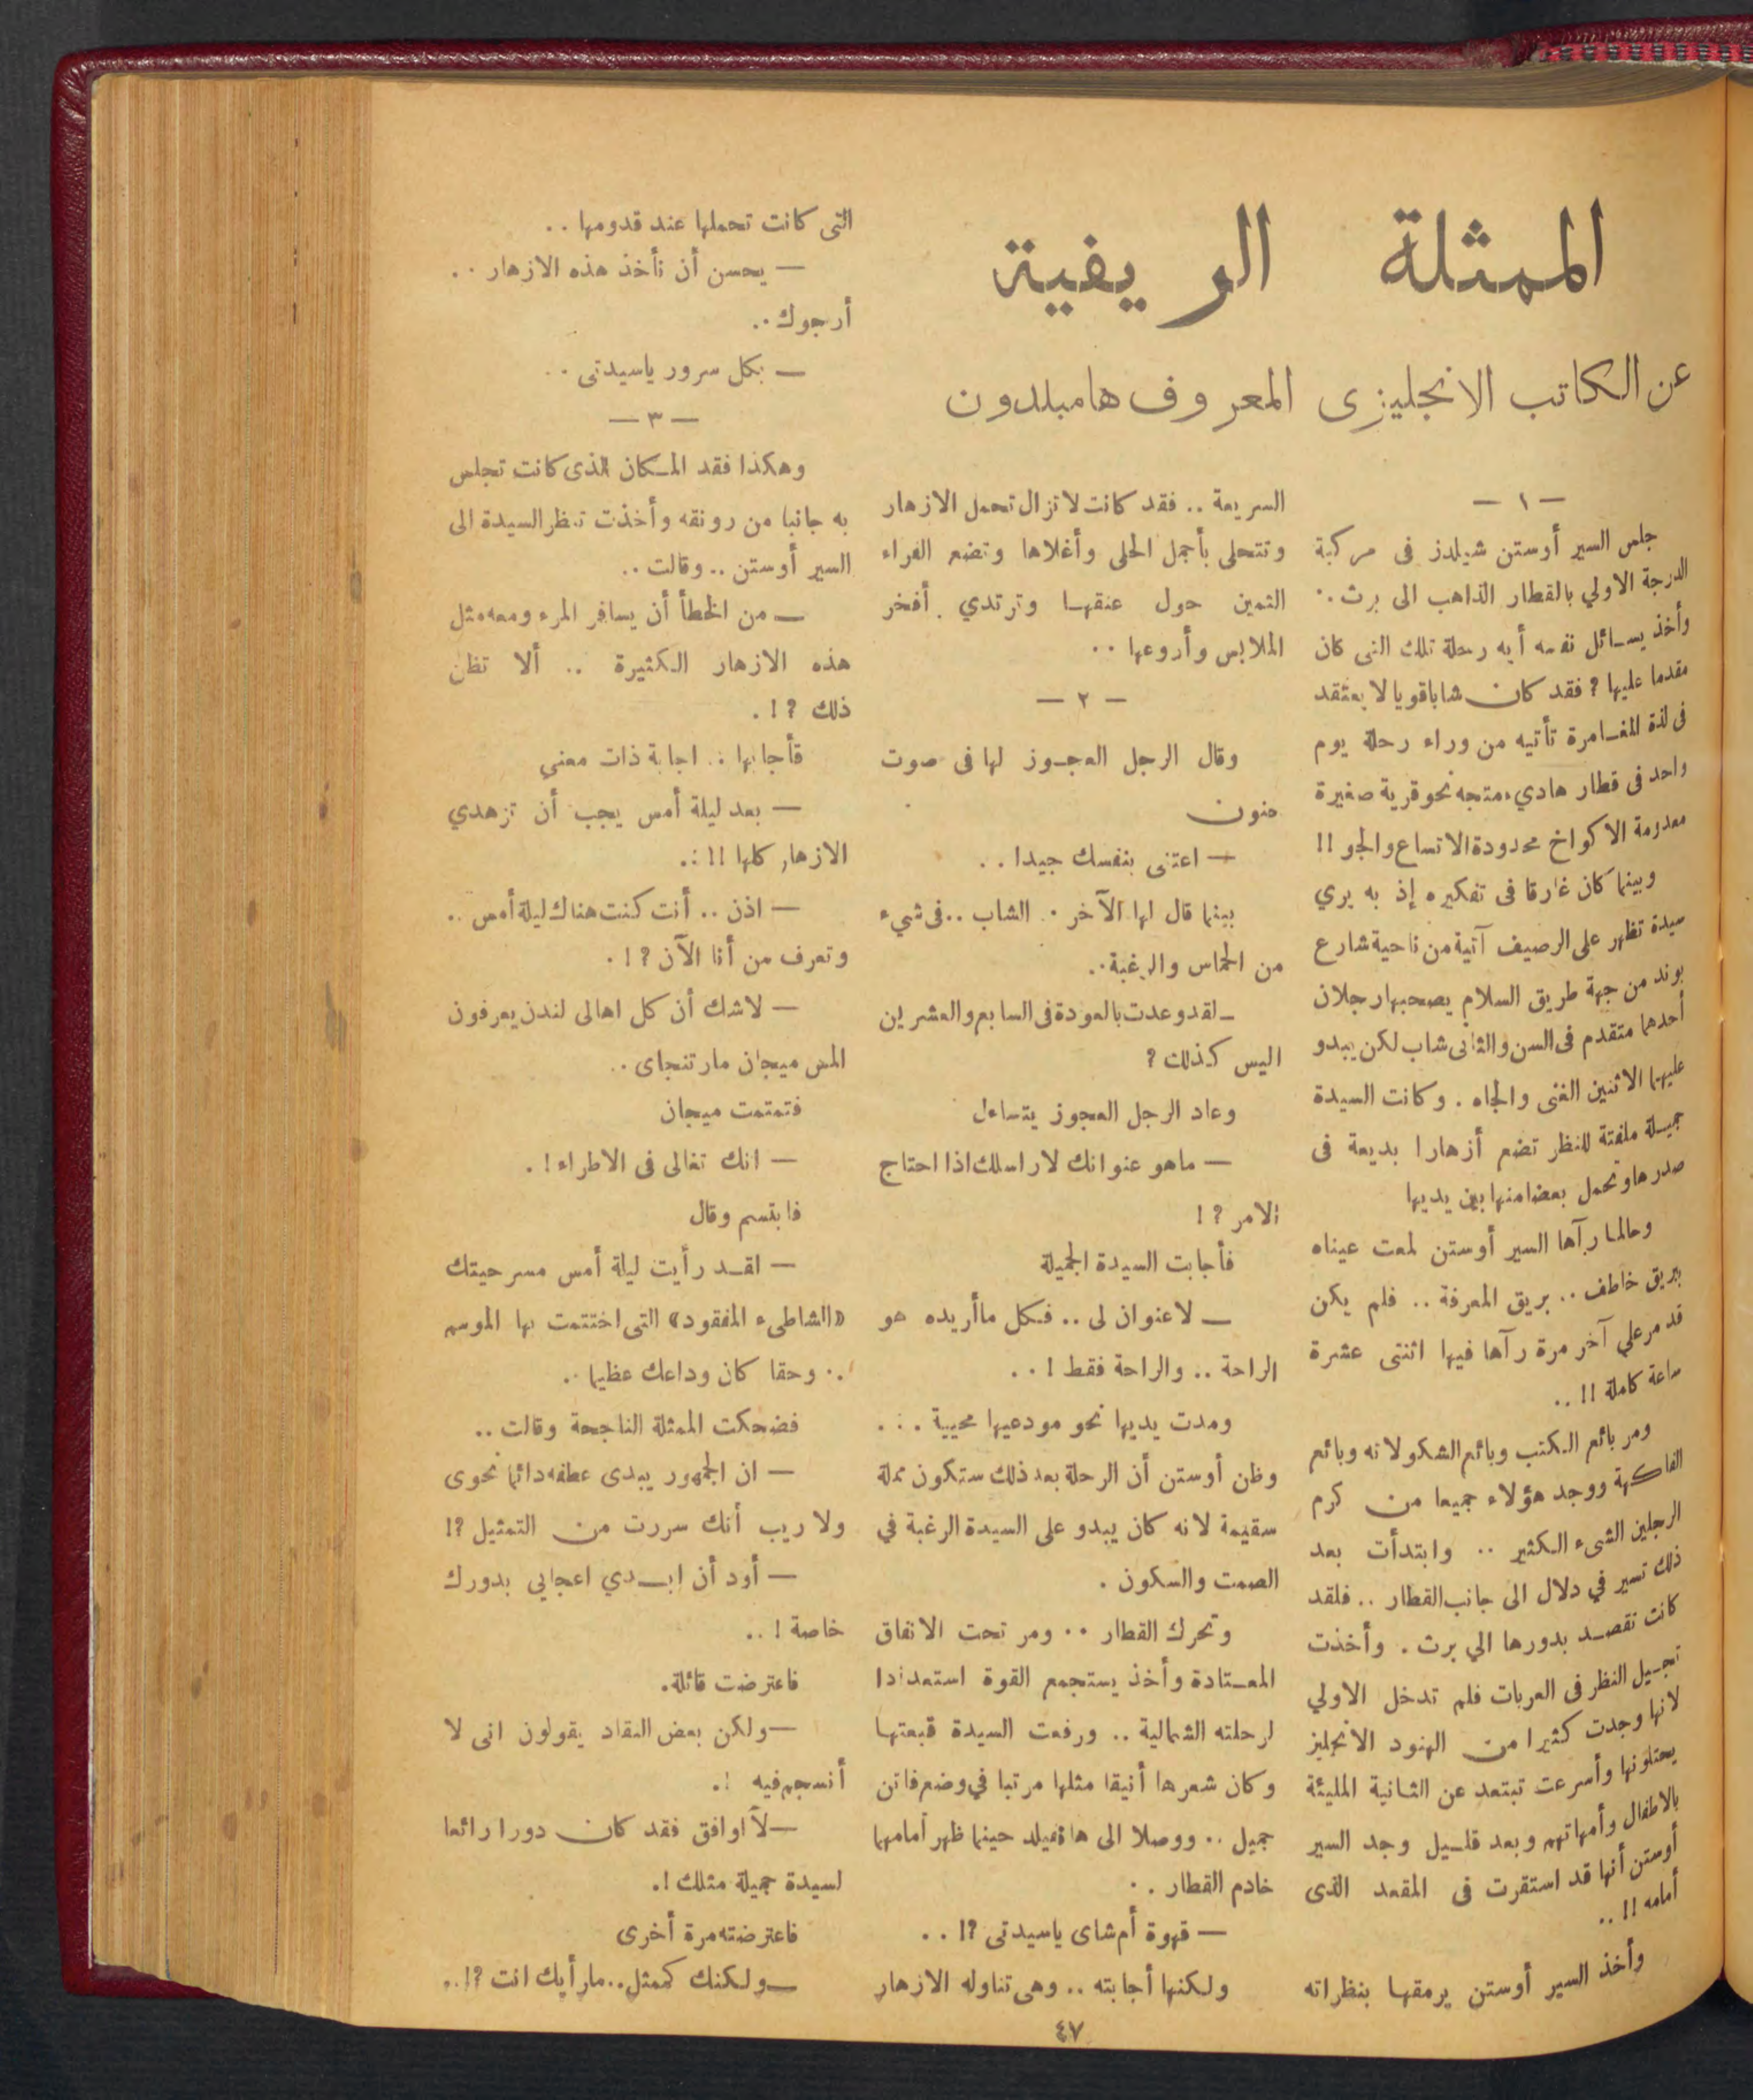 الممثلة الريفية
عن الكاتب الانجليزى المعروف هامبلدون
— ١ —
جلس السير أوستن شيلدز فى مركبة
الدرجة الاولي بالقطار الذاهب الى برث ..
وأخذ يسائل نفسه أية رحلة تلك التى كان
مقدما عليها ؟ فقد كان شابا قويا لا يعتقد
فى لذة المغامرة تأتيه من وراء رحلة يوم
واحد فى قطار هادىء متجه نحو قرية صغيرة
معدومة الاكواخ محدودة الاتساع والجو !!
وبينما كان غارقا فى تفكيره إذ به يري
سيدة تظهر على الرصيف آتية من ناحية شارع
بوند من جهة طريق السلام يصحبها رجلان
أحدهما متقدم فى السن والثانى شاب لكن يبدو
عليهما الاثنين الغنى والجاه . وكانت السيدة
جميلة ملفتة للنظر تضع أزهارا بديعة فى
صدرها وتحمل بعضا منها بين يديها
وحالما رآها السير أوستن لمعت عيناه
ببريق خاطف .. بريق المعرفة .. فلم يكن
قد مر علي آخر مرة رآها فيها اثنتى عشرة
ساعة كاملة !! ..
ومر بائع الكتب وبائع الشكولاته وبائع
الفاكهة ووجد هؤلاء جميعا من كرم
الرجلين الشىء الكثير .. وابتدأت بعد
ذلك تسير في دلال الى جانب القطار .. فلقد
كانت تقصد بدورها الي برث . وأخذت
تجيل النظر فى العربات فلم تدخل الاولي
لانها وجدت كثيرا من الهنود الانجليز
يحتلونها وأسرعت تبتعد عن الثانية المليئة
بالاطفال وأمهاتهم وبعد قليل وجد السير
أوستن أنها قد استقرت فى المقعد الذى
أمامه !! ..
وأخذ السير أوستن يرمقها بنظراته
السريعة .. فقد كانت لا تزال تحمل الازهار
وتتحلى بأجمل الحلى وأغلاها وتضع الفراء
الثمين حول عنقها وترتدي أفخر
الملابس وأروعها ..
— ٢ —
وقال الرجل العجوز لها فى صوت
حنون
— اعتنى بنفسك جيدا ..
بينما قال لها الآخر .. الشاب .. فى شيء
من الحماس والرغبة ..
— لقد وعدت بالعودة فى السابع والعشرين
اليس كذلك ؟
وعاد الرجل العجوز يتساءل
— ماهو عنوانك لاراسلك اذا احتاج
الامر ؟ !
فأجابت السيدة الجميلة
— لا عنوان لى .. فكل ما أريده هو
الراحة .. والراحة فقط ! ..
ومدت يديها نحو مودعيها محيية ...
وظن أوستن أن الرحلة بعد ذلك ستكون مملة
سقيمة لانه كان يبدو على السيدة الرغبة في
الصمت والسكون .
وتحرك القطار .. ومر تحت الانفاق
المعتادة وأخذ يستجمع القوة استعدادا
لرحلته الشمالية .. ورفعت السيدة قبعتها
وكان شعرها أنيقا مثلها مرتبا في وضع فاتن
جميل .. ووصلا الى هاتفيلد حينما ظهر أمامهما
خادم القطار ..
— قهوة أم شاى ياسيدتى ؟! ..
ولكنها أجابته .. وهى تناوله الازهار
التى كانت تحملها عند قدومها ..
— يحسن أن تأخذ هذه الازهار ..
أرجوك ..
— بكل سرور ياسيدتى ..
— ٣ —
وهكذا فقد المكان الذى كانت تجلس
به جانبا من رونقه وأخذت تنظر السيدة الى
السير أوستن .. وقالت ..
— من الخطأ أن يسافر المرء ومعه مثل
هذه الازهار الكثيرة .. ألا تظن
ذلك ؟ ! .
فأجابها .. اجابة ذات معني
— بعد ليلة أمس يجب أن تزهدي
الازهار كلها !! ..
— اذن .. أنت كنت هناك ليلة أمس ..
وتعرف من أنا الآن ؟ ! .
— لاشك أن كل اهالى لندن يعرفون
المس ميجان مارتنجاى ..
فتمتمت ميجان
— انك تغالى فى الاطراء ! .
فابتسم وقال
— لقد رأيت ليلة أمس مسرحيتك
«الشاطىء المفقود» التى اختتمت بها الموسم
.. وحقا كان وداعك عظيما ..
فضحكت الممثلة الناجحة وقالت ..
— ان الجمهور يبدى عطفه دائما نحوى
ولا ريب أنك سررت من التمثيل ؟!
— أود أن ابدي اعجابي بدورك
خاصة ! ..
فاعترضت قائلة .
— ولكن بعض النقاد يقولون انى لا
أنسجم فيه ! .
— لا اوافق فقد كان دورا رائعا
لسيدة جميلة مثلك ! .
فاعترضته مرة أخرى
— ولكنك كممثل .. مارأيك انت ؟! ..
٤٧